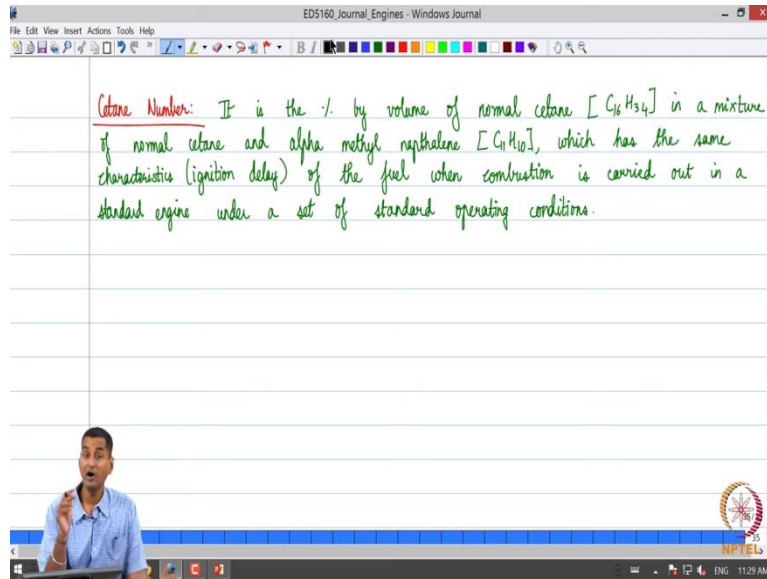 ED5160_Journal_Engines - Windows Journal
File Edit View Insert Actions Tools Help
B I
Cetane Number: It is the % by volume of normal cetane [ C16 H34 ] in a mixture
of normal cetane and alpha methyl napthalene [ C11 H10 ], which has the same
characteristics (ignition delay) of the fuel when combustion is carried out in a
standard engine under a set of standard operating conditions.
35
NPTEL
ENG 11:29 AM